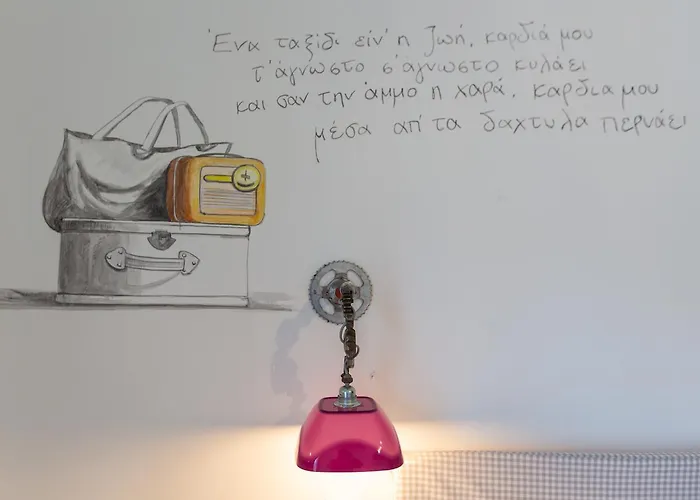 Ένα ταξίδι είν' η ζωή, καρδιά μου
τ' άγνωστο σ' άγνωστο κυλάει
και σαν την άμμο η χαρά, καρδια μου
μέσα απ' τα δαχτυλα περνάει